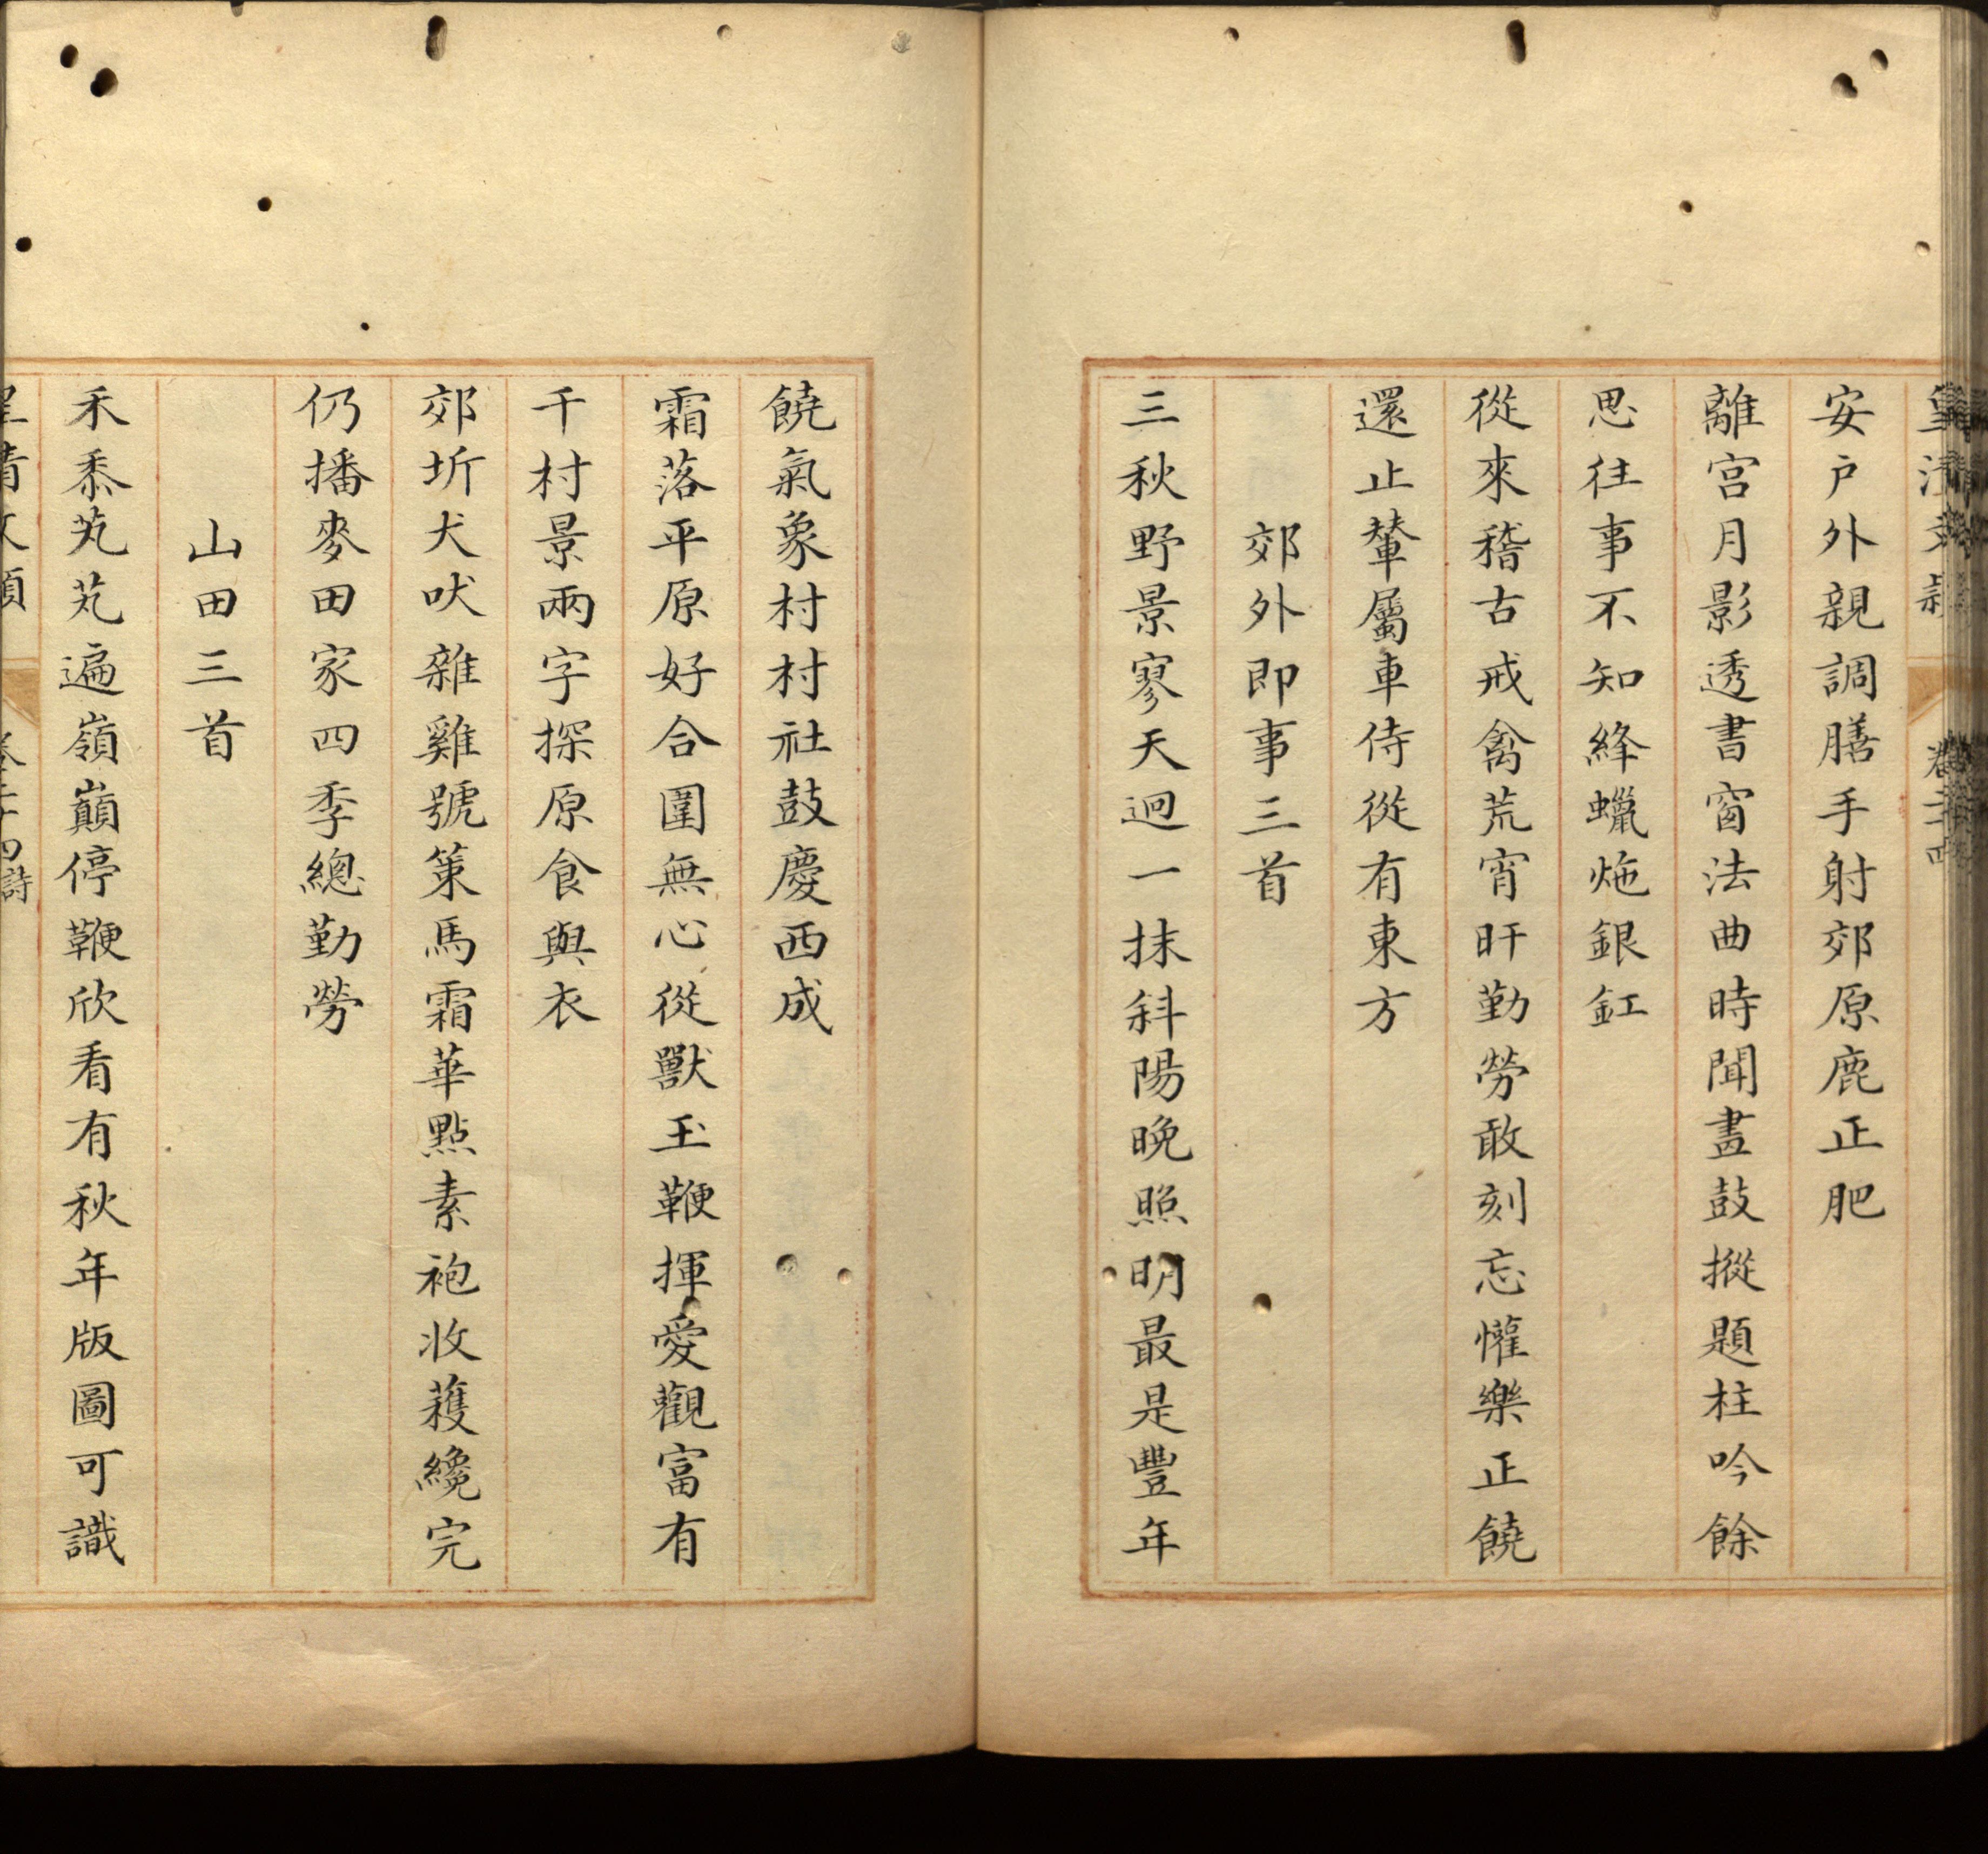 皇清文穎 卷二十四
安户外親調膳手射郊原鹿正肥
離宫月影透書窗法曲時聞畫鼓摐題柱吟餘
思往事不知絳蠟炧銀釭
從來稽古戒禽荒宵旰勤勞敢刻忘懽樂正饒
還止輦屬車侍從有東方
郊外即事三首
三秋野景寥天迥一抹斜陽晚照明最是豐年
饒氣象村村社鼓慶西成
霜落平原好合圍無心從獸玉鞭揮愛觀富有
千村景兩字探原食與衣
郊圻犬吠雜雞號策馬霜華點素袍收蕿纔完
仍播麥田家四季總勤勞
山田三首
禾黍芃芃遍嶺巔停鞭欣看有秋年版圖可識
皇清文穎 卷二十四詩